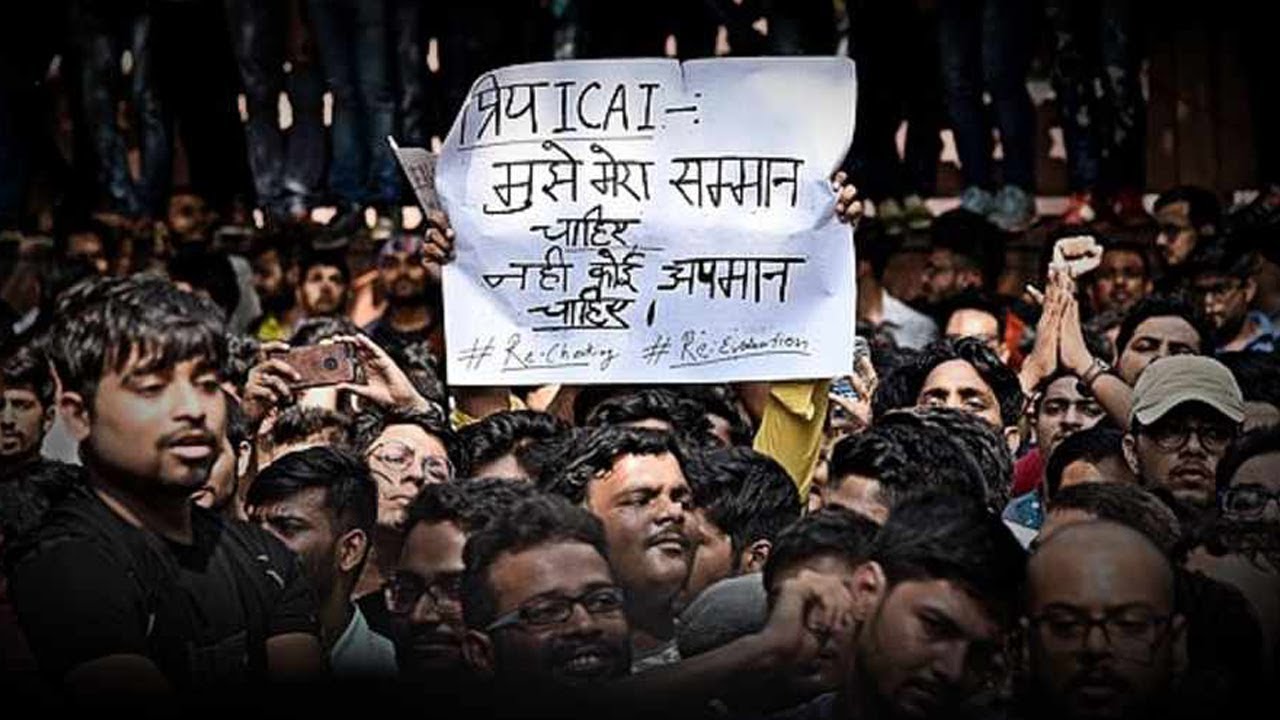 प्रिय ICAI -:
मुझे मेरा सम्मान
चाहिए,
नही कोई अपमान
चाहिए।
#Re-Checking #Re-Evaluation